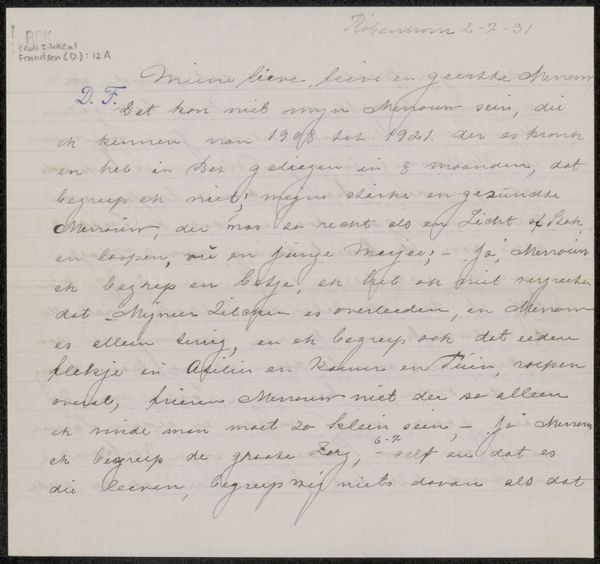 RPK
(coll Zilcken)
Frandsen (D.): 12A
København 2-7-31
D. F.
Miene lieve, lieve en geerste Merrouw
Det kon niet myn Merrouw sein, die
ek kennen van 1908 tot 1921. der es kronk
en heb in Bet geliegen in 8 maanden, dat
begreip ek niet; mejne stärke en gezundte
Merrouw, der was so recht als en Licht of Stok
en loopen, vie en junge Meisje; – Ja, Merrouw
ek begreip en betje, ek heb ok niet vergeeten
dat Mijneer Zilcken es overleeden, en Merrouw
es alleen terug, en ek begreip ook dat eedere
flekje in Atelier en Kamer en Tuin, roepen
overal, frieren Merrouw niet der so alleen
ek vinde man moet zo klein sein, – Ja Merrouw
ek begreip de groote Zorg, 6-7 – self en dat es
die leeven, begreip wej niets davon als dat